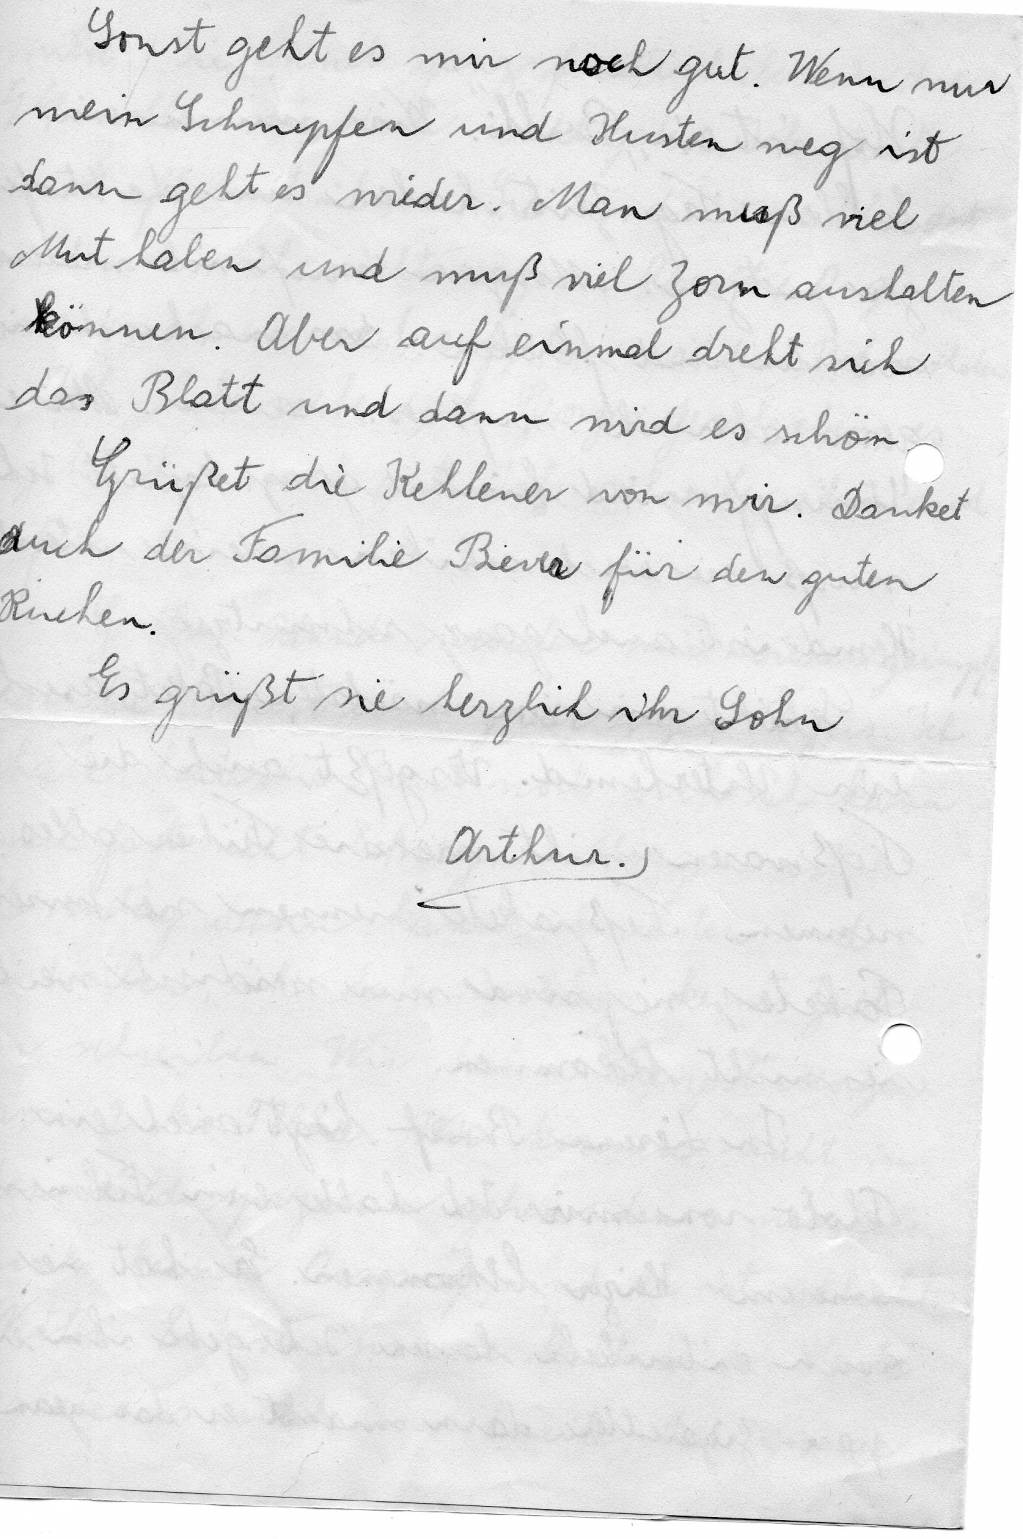 Sonst geht es mir noch gut. Wenn nur
mein Schnupfen und Husten weg ist
dann geht es wieder. Man muß viel
Mut haben und muß viel Zorn aushalten
können. Aber auf einmal dreht sich
das Blatt und dann wird es schön.
Grüßet die Kehlener von mir. Danket
auch der Familie für den guten
Kuchen.
Es grüßt sie herzlich ihr Sohn
Arthur.